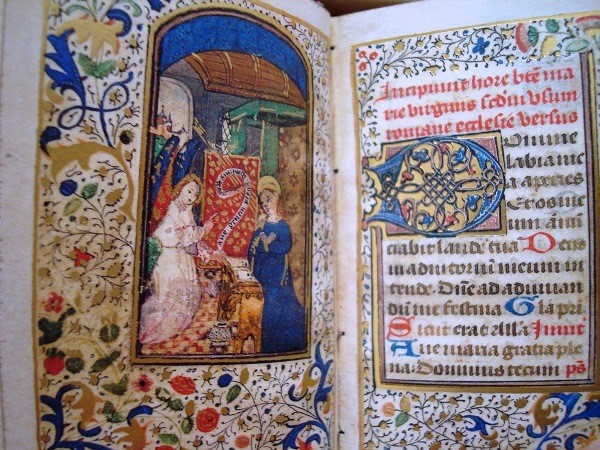 Incipiūt hore btē ma
rie virginis scdm usum
romane ecclesie versus
Domine
labia me
a aperies
Et os me
um anūn
ciabit laudē tuā Deus
in adiutoriū meum in
tende. Dnē ad adiuuan
dum me festina Gla pri
Sicut erat alla Inuit
Aue maria gratia ple
na. Dominus tecum ps